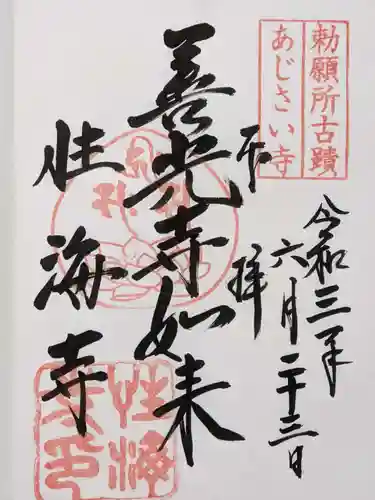 勅願所古蹟
あじさい寺
令和三年
六月二十三日
奉拝
善光寺如来
性海寺
性海寺印